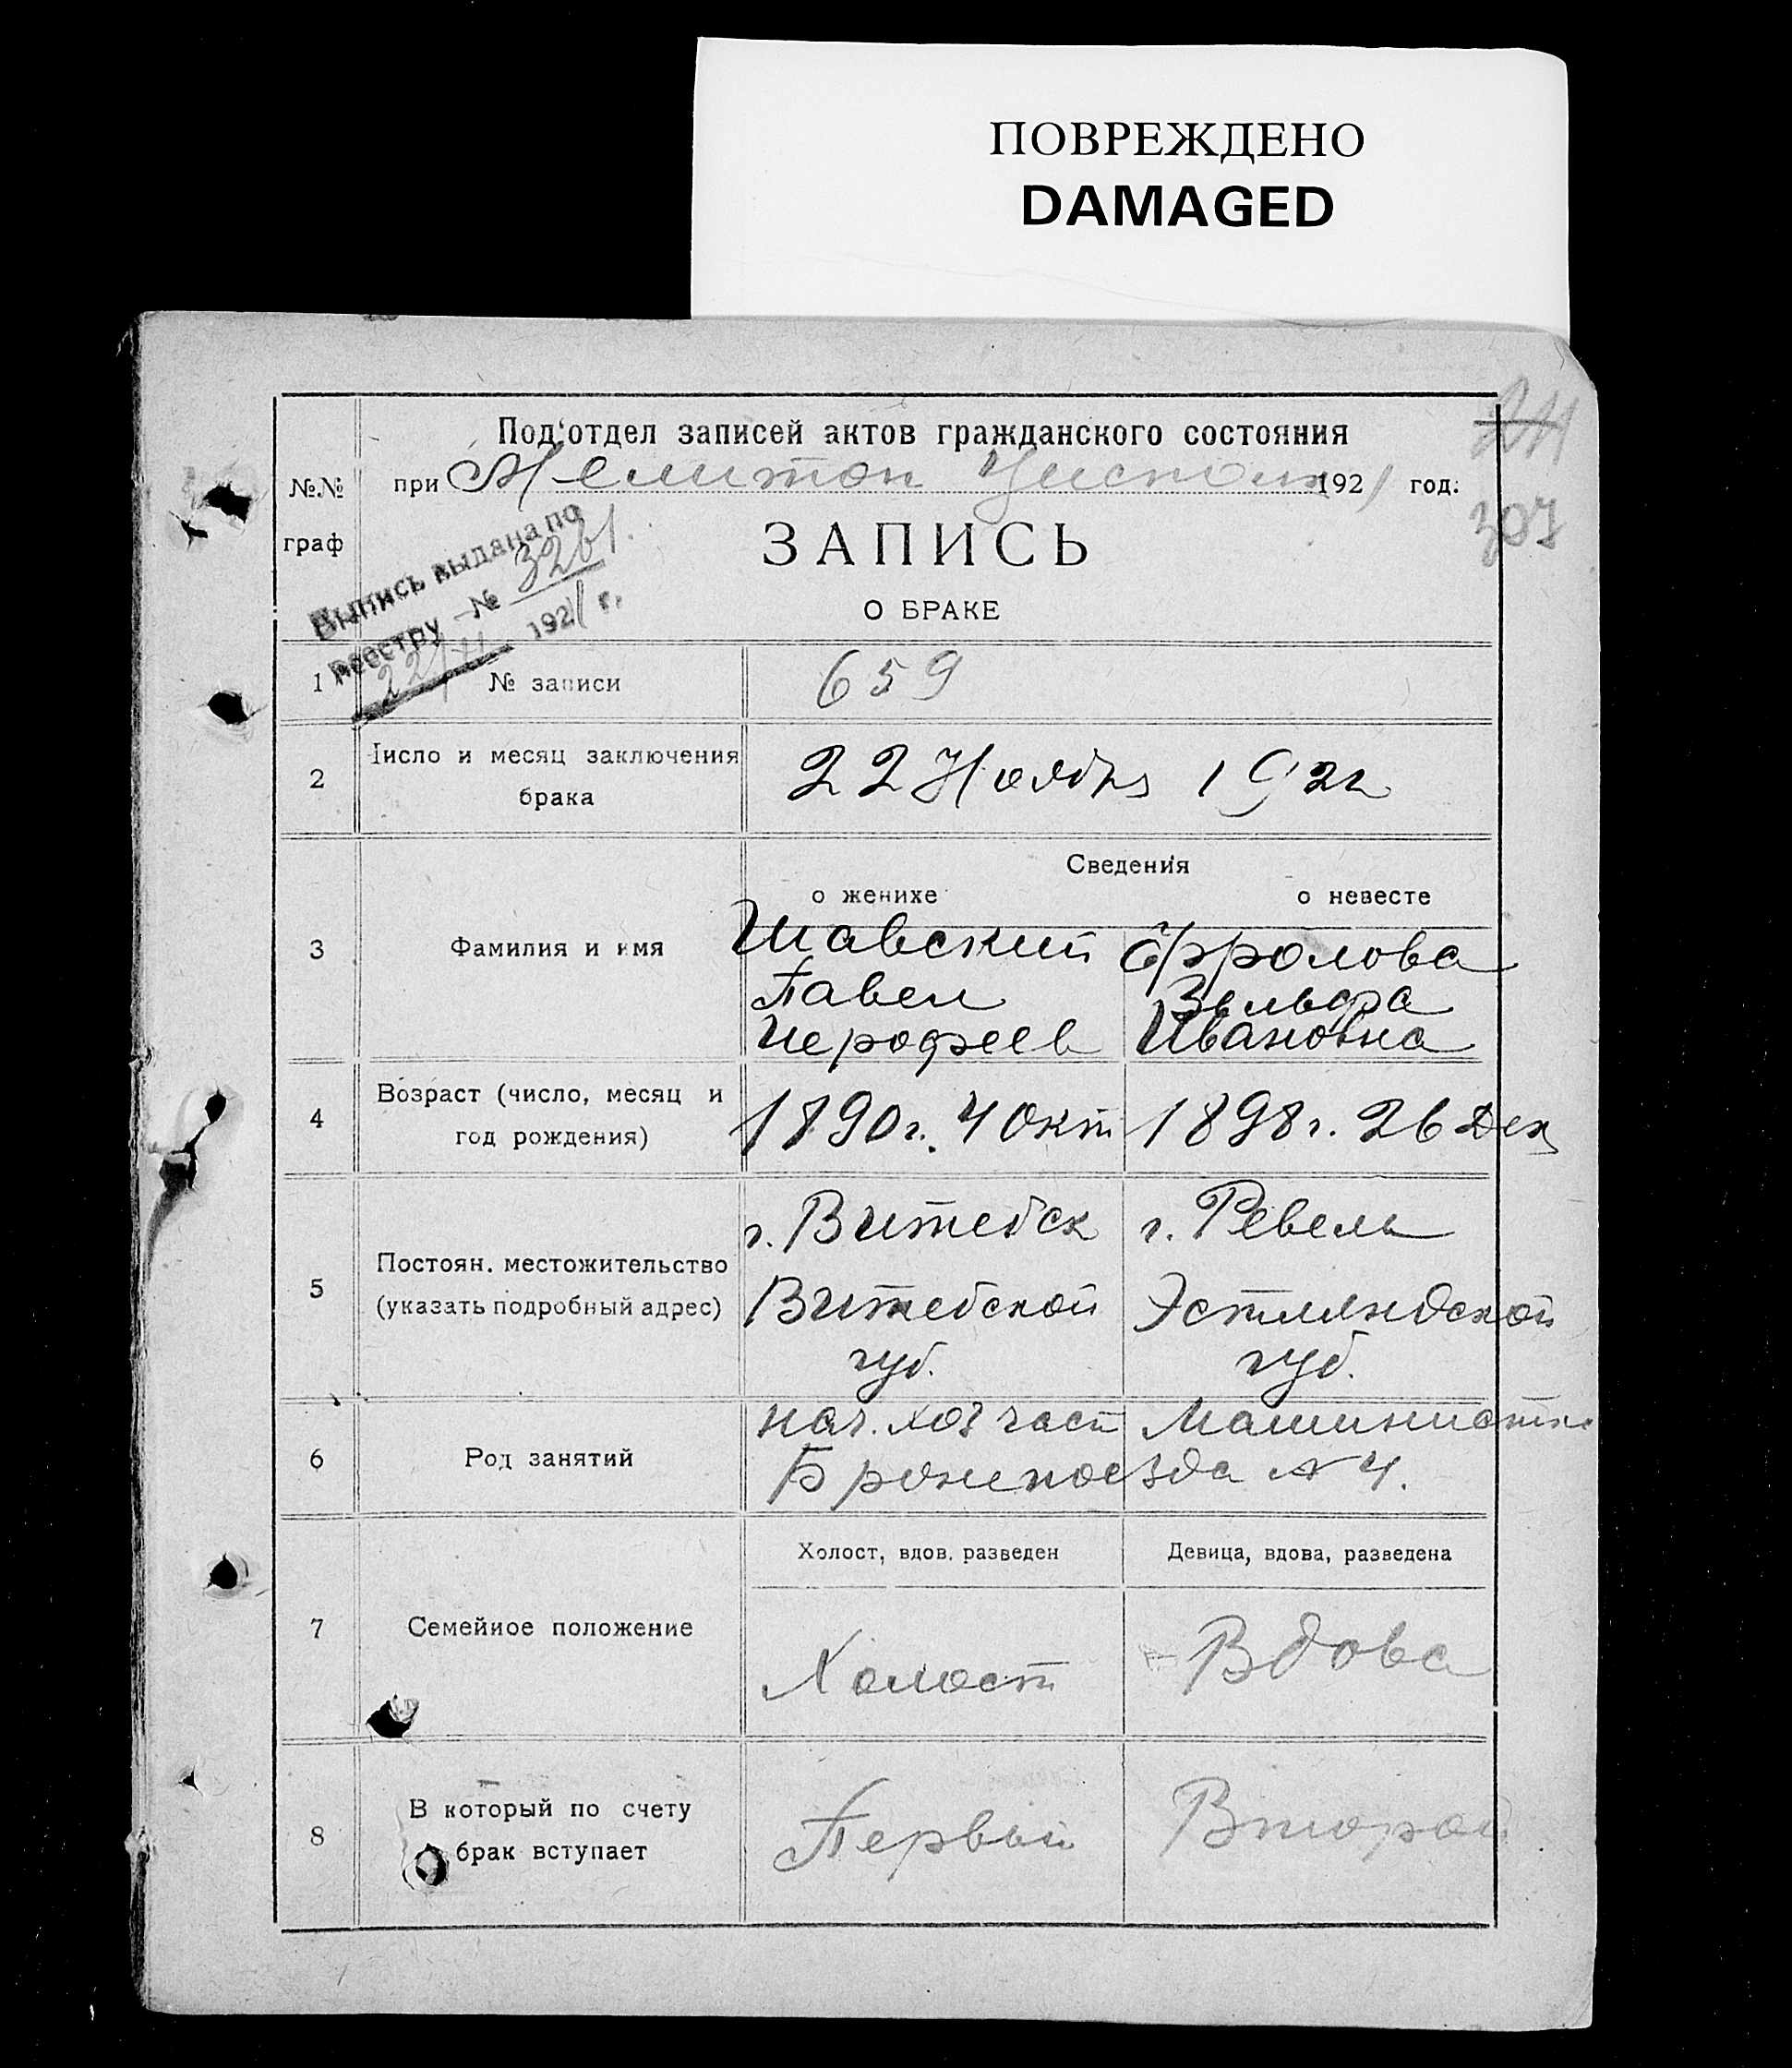 ПОВРЕЖДЕНО
DAMAGED
211
307
Под‘отдел записей актов гражданского состояния
№№ граф
при Мелитоп Уисполк 1921 год.
ЗАПИСЬ
О БРАКЕ
Выпись выдана по
реестру № 3261.
22/II 1921 г.
1 № записи 659
2 Число и месяц заключения брака 22 Ноябрь 1921
Сведения
о женихе о невесте
3 Фамилия и имя
Шавский
Павел
Иерофеев
Фролова
Зельфа
Ивановна
4 Возраст (число, месяц и год рождения)
1890 г. 4 Окт
1898 г. 26 Дек
5 Постоян. местожительство (указать подробный адрес)
г. Витебск
Витебской
губ.
г. Ревель
Эстляндской
губ.
6 Род занятий
нач. хоз част
Бронепоезда № 4.
Машинистка
7 Семейное положение
Холост, вдов. разведен
Холост
Девица, вдова, разведена
Вдова
8 В который по счету брак вступает
Первый
Второй